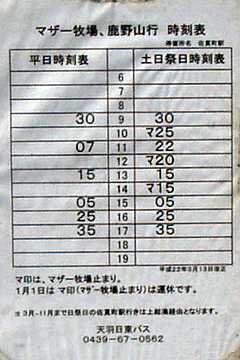 マザー牧場、鹿野山行 時刻表
停留所名 佐貫町駅
平日時刻表 土日祭日時刻表
6
7
8
30 9 30
10 マ25
07 11 22
12 マ20
15 13 15
14 マ15
05 15 05
25 16 25
35 17 マ35
18
19
平成22年3月13日改正
マ印は、マザー牧場止まり。
1月1日は マ印(マザー牧場行)は運休です。
※3月~11月まで日祭日の佐貫町駅行きは上総湊経由となります。
天羽日東バス
0439-67-0562